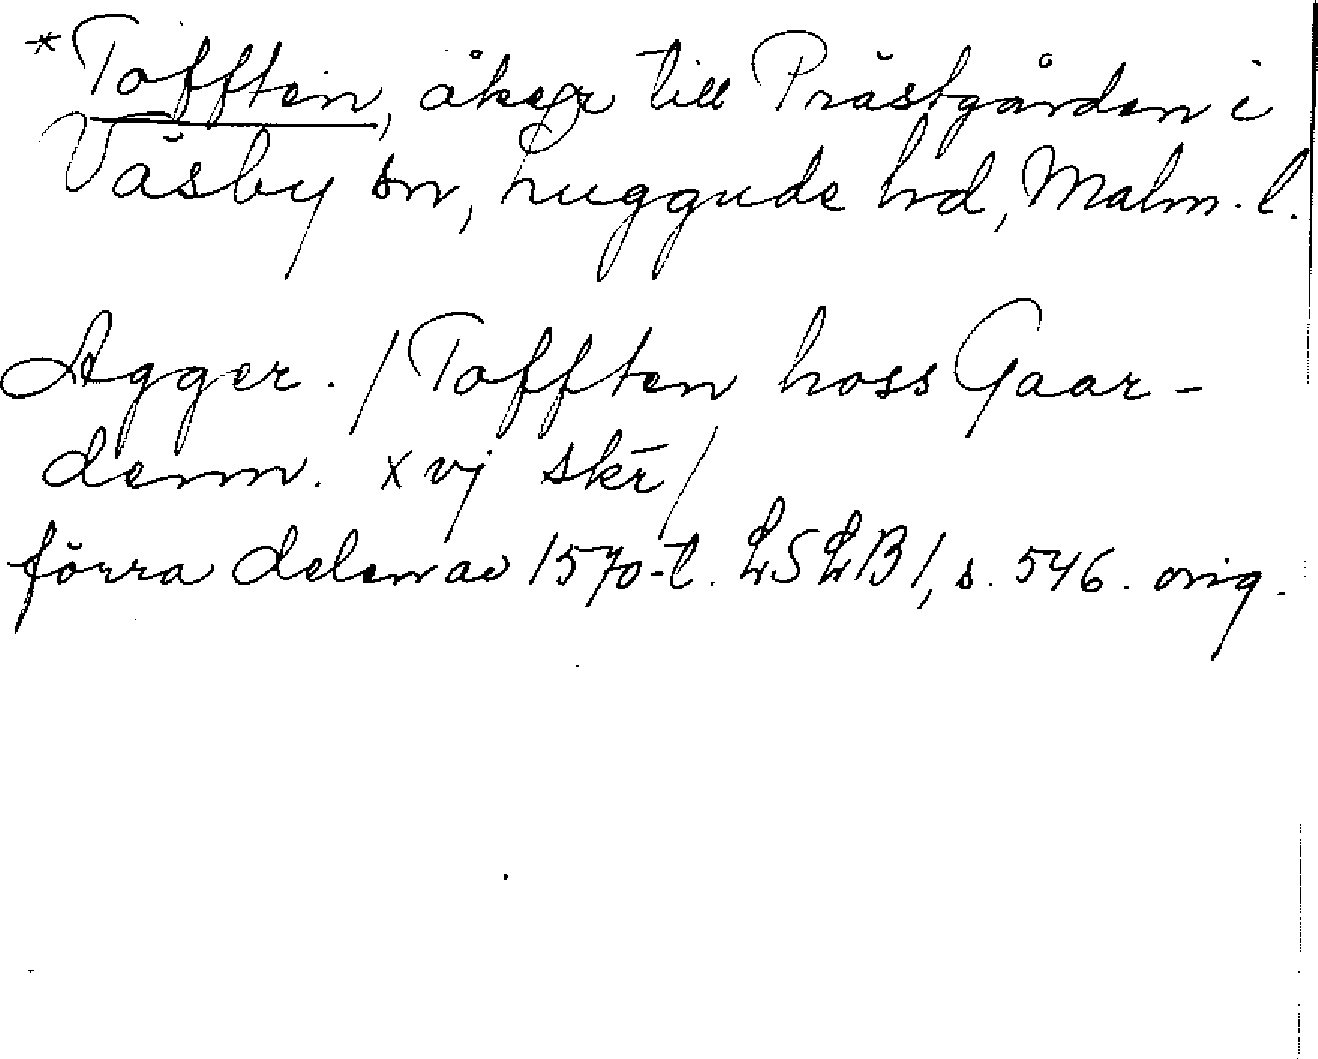 *Tofften, åker till Prästgården i
Väsby sn, Luggude hd, Malm. l.
Agger. / Tofften hoss Gaar-
denn. xvj skr̄ /
förra delen av 1570-t. LSLB 1, s. 546. orig.